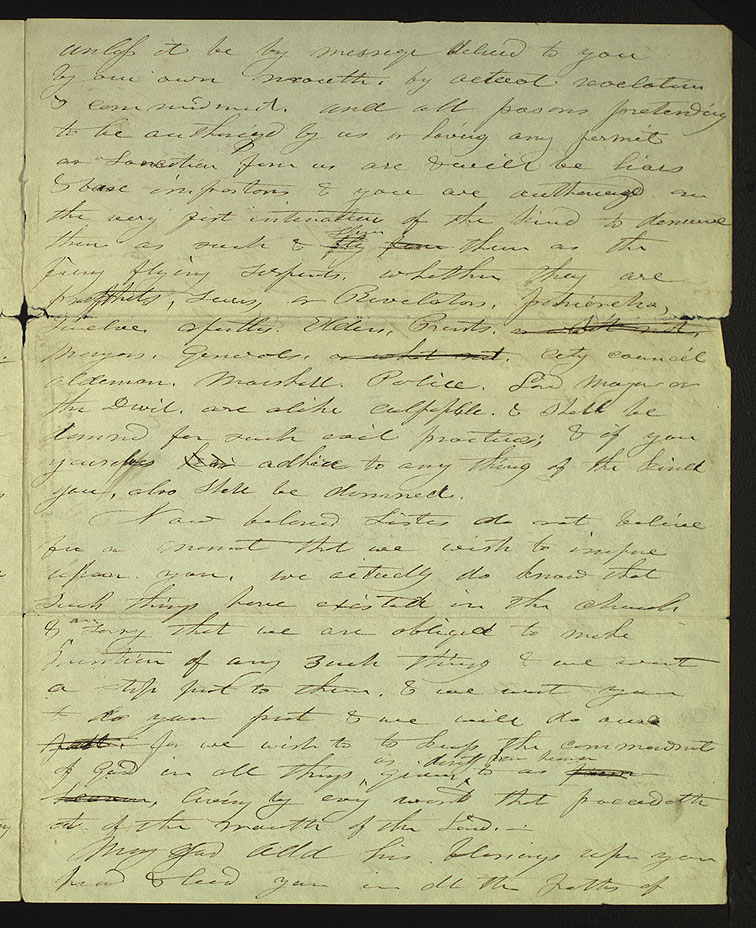 unless it be by message delived to you
by our own mouth. by actual revelation
& commndmnt. and all pasons pretending
to be authorizd by us or having any permit
or Sanction from us are & will be liars
& base impostors & you are authorized on
the very first intimation of the kind to denounce
them as such & shun fly from them as the
firey flying serpents. whether they are
prophets, Seers, or Revelators. Patriarchs,
twelve apostles. Elders, Priests. or what not,
Mayors. Generals. or what not. City council
aldeman. Marshall. Police. Lord Mayor or
the Devil. are alike culpible. & shall be
damned for such evil practices; & if you
yourselves adhere to any thing of the kind
you, also shall be damned.
Now beloved Sisters do not believe
for a moment that we wish to impose
upon you, we actually do know that
such things have existed in the church
& are sorry that we are obliged to make
mention of any such thing & we want
a stop put to them. & we want you
to do your part & we will do ours
part. for we wish to to keep the commandmnts
of God in all things, as given directly from heaven to as from
heaven, living by evry word that proceedeth
out of the mouth of the Lord.—
May God Add his blessings upon your
head & lead you in all the paths of